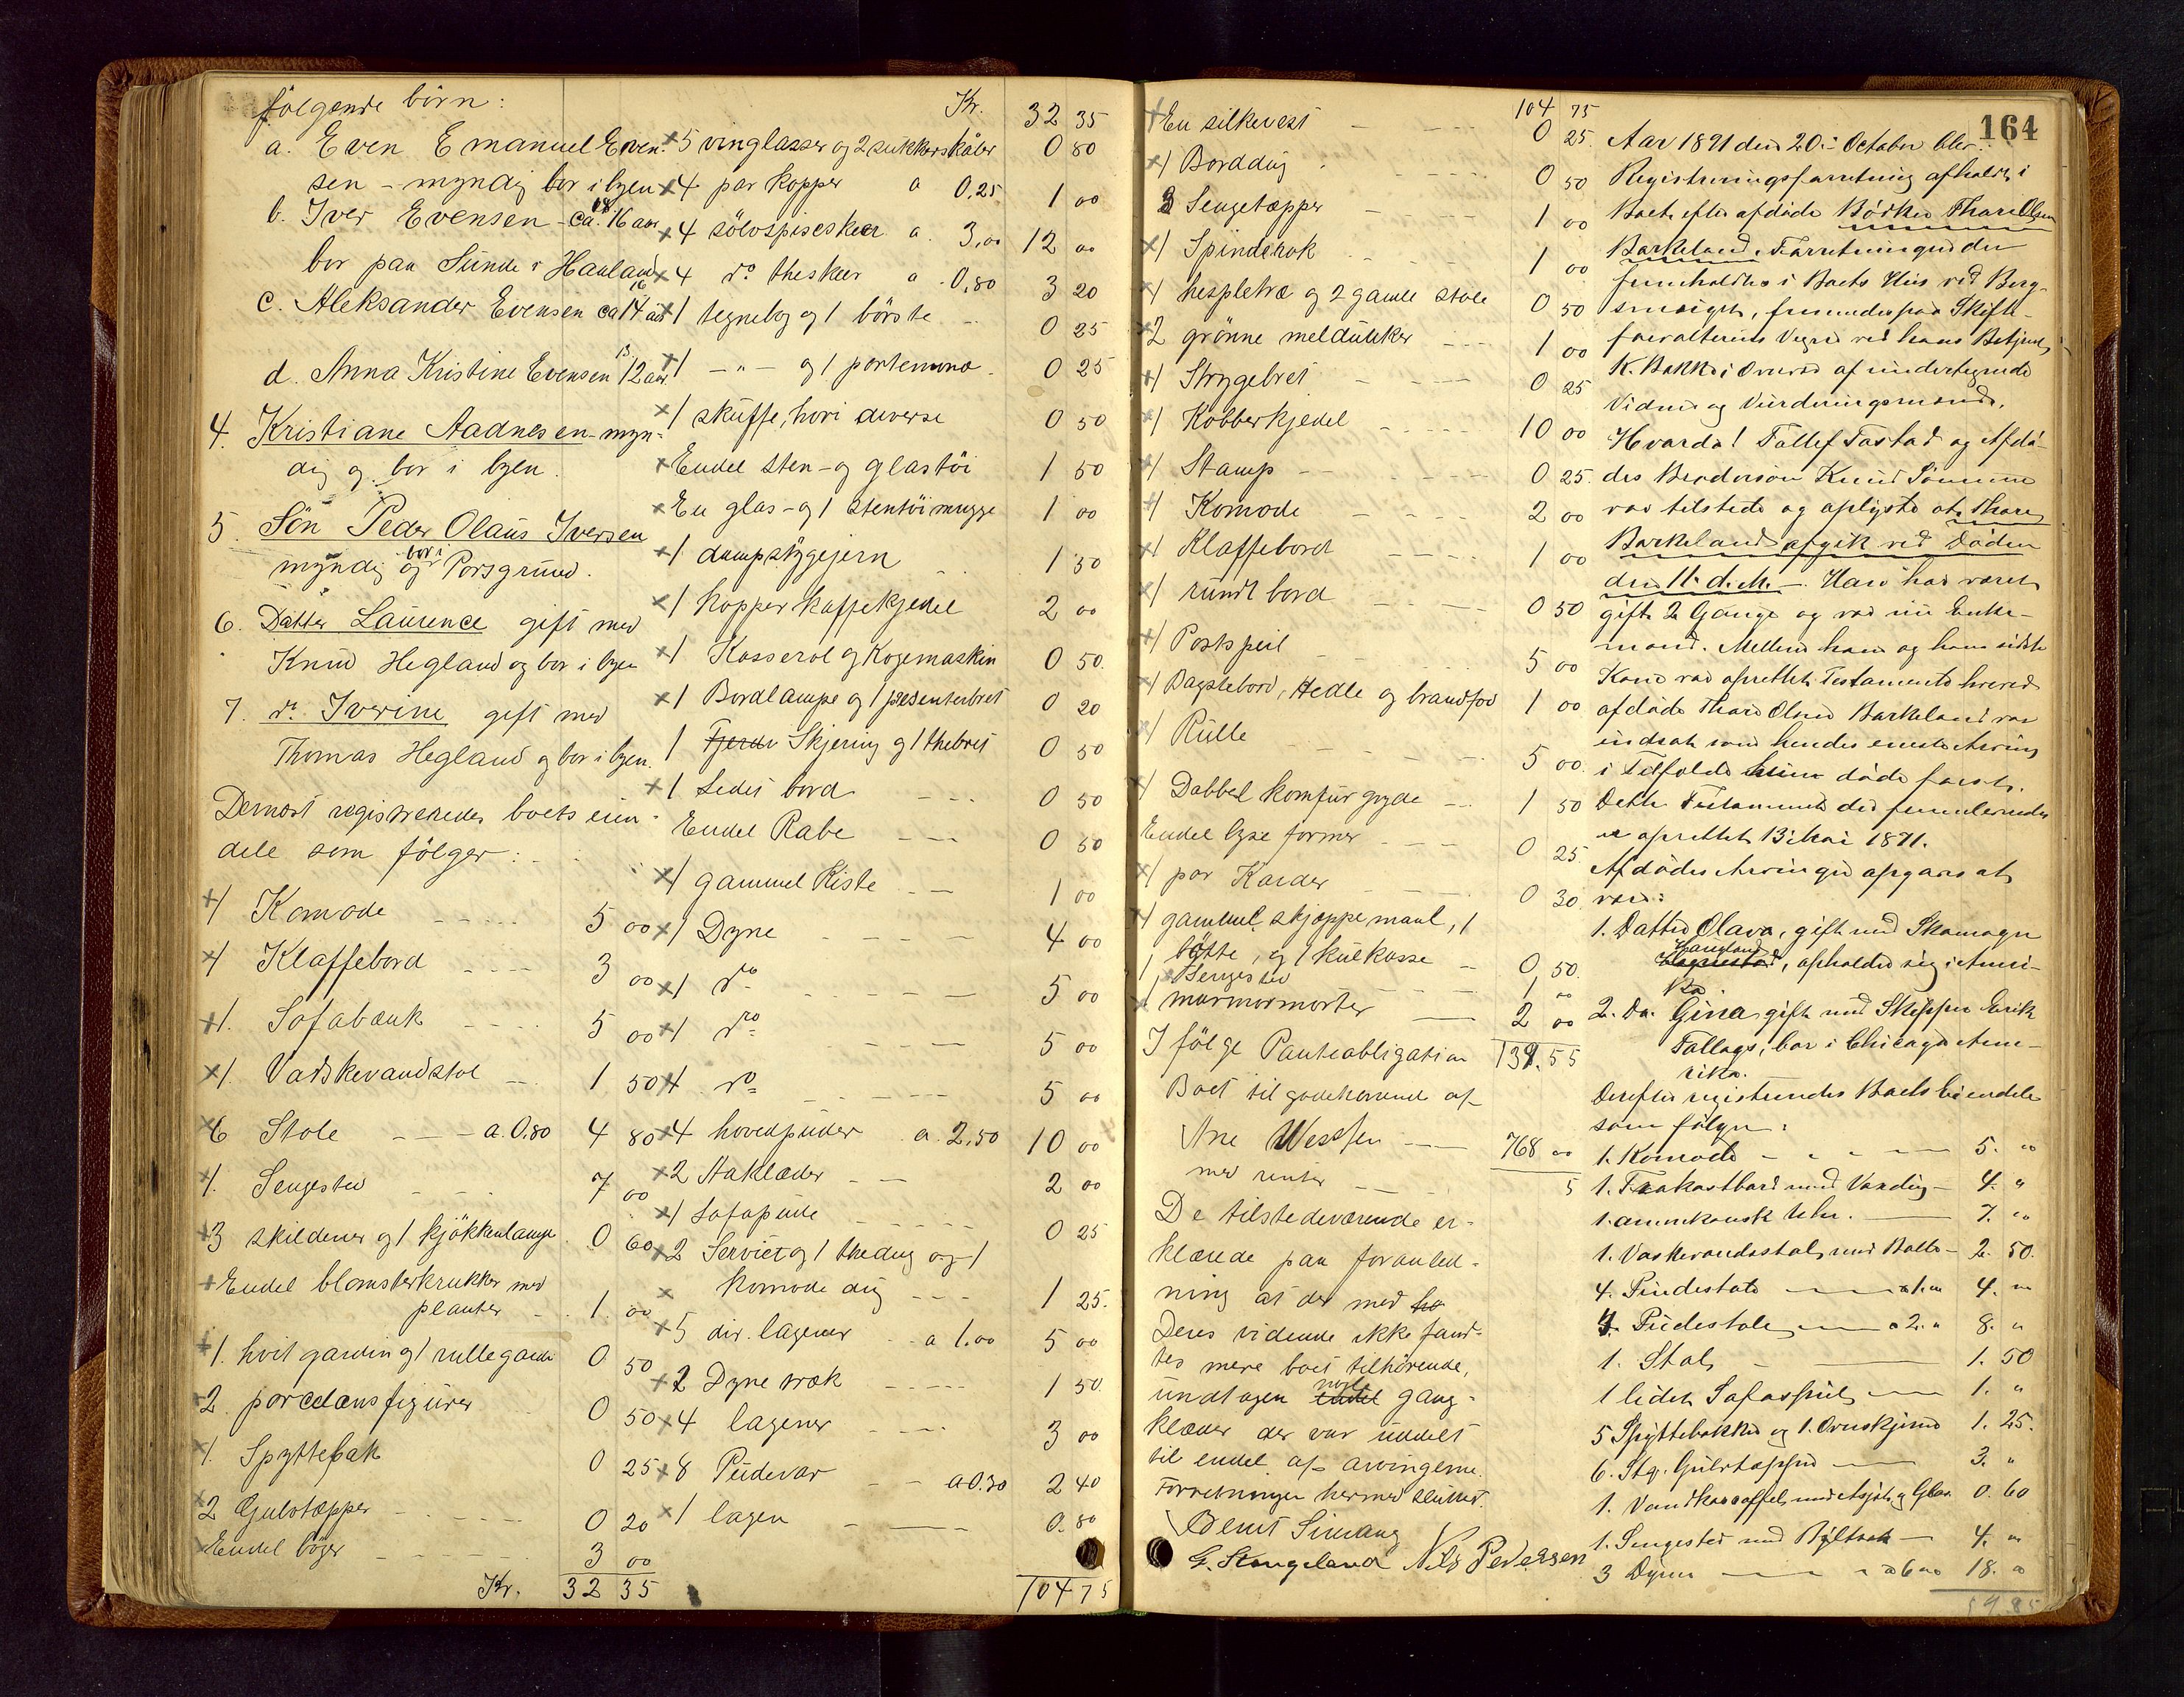 følgende börn:
a. Even Emanuel Even-
sen - myndig bor i byen
b. Iver Evensen - ca. 16 aar 18
bor paa Sunde i Hauland
c. Aleksander Evensen ca 14 aar 16
d. Anna Kristine Evensen 12 aar 13
4. Kristiane Aadnesen - myn-
dig og bor i byen.
5. Sön Peder Olaus Iversen
myndig og bor i Porsgrund.
6. Datter Laurence gift med
Knud Hegland og bor i byen
7. do. Iverine gift med
Thomas Hegland og bor i byen.
Dernæst registreredes boets eien-
dele som fölger:
1 Komode 5 00
1 Klaffebord 3 00
1. Sofabænk 5 00
1. Vadskevandstol 1 50
6 Stole a. 0.80 4 80
1. Sengested 7 00
3 skilderier og 1 kjökkenlampe 0 60
Endel blomsterkrukker med
planter 1. 00
1. hvit gardin og 1 rullegardin 0 50
2. porcelænsfigurer 0 50
1. Spyttebak 0 25
2 Gulvtæpper 0 20
Endel böger 3 00
Kr. 32 35
Kr. 32 35
5 vinglasser og 2 sukkerskåler 0 80
4 par kopper a 0,25 1 00
4 sölvspiseskeer a. 3,00 12 00
4 do theskeer a 0,80 3 20
1 tegnebog og 1 börste 0 25
1 - " - og 1 portemonæ 0 25
1 skuffe, hvori diverse 0 50
Endel sten- og glastöi 1 50
En glas- og 1 stentöimugge 1 00
1 dampstygejern 1 50
1 kopper kaffekjedel 2 00
1 Kasserol og Kogemaskin 0 50.
1 Bordlampe og 1 presenterbret 0 20
1 Skjering og 1 thebret 0 50
1 Lidet bord 0 50
Endel Rabe 0 50
1 gammel Kiste 1 00
1 Dyne 4 00
1 do 5 00
1 do 5 00
1 do 5 00
4 hovedpuder a. 2,50 10 00
2 Aaklæder 2 00
1 Sofapude 0 25
2 Serviet og 1 thedug og 1
Komode dug 1 25.
5 div. lagener a 1.00 5 00
2 Dyne træk 1 50.
4 lagener 3 00
8 Pudevar a 0.30 2 40
1 lagen 0. 80
104 75
104 75
En silkevest 0 25.
1 Borddug 0 50
3 Sengetæpper 1 00
1 Spinderok 1 00
1 hespletræ og 2 gamle stole 0 50
2 grönne meldunker 1 00
1 Strygebret 0 25
1 Kobberkjedel 10 00
1 Stamp 0 25.
1 Komode 2 00
1 Klaffebord 1 00
1 rundt bord 0 50
1 Postspeil 5 00
1 Bagstebord, Hedle og brandfod 1 00
1 Rulle 5 00.
1 Dobbel komfurgryde 1 50
Endel lyse former 0 25.
1 par Karder 0 30
1 gammel skjæppemaal, 1
bötte, og 1 kulkasse 0, 50.
1 Sengested 1 00
1 marmormorter 2 00
139.55
I fölge Panteobligation
Boet tilgodekommende af
Ane Wessen 768 00
med renter 5
De tilstedeværende er-
klærede paa foranled-
ning at der med
Deres vidende ikke fand-
tes mere boet tilhörende,
undtagen nogle gang-
klæder der var uddelt
til endel af arvingerne.
Forretningen hermed sluttet.
G. Stangeland Nils Pedersen
164
Aar 1891 den 20de October blev
Registreringsforretning afholdt i
Boet efter afdöde Bödker Thore Olsen
Barkeland. Forretningen der
fremholdtes i Boets Hus ved Berg-
, fremmödte paa Skifte-
forvalterens Vegne ved hans Betjent
K. Bakke i Overvær af undertegnede
Vidner og Vurderingsmænd.
Hvorda! Tollef Tastad og Afdö-
des Brodersön Knud Sömme
var tilstede og oplyste at Thore
Barkeland afgik ved Döden
den 11. d. M. Han har været
gift 2 Gange og var nu Enke-
mand. Mellem ham og hans sidste
Kone var oprettet Testamente hvorved
afdöde Thore Olsen Barkeland var
indsat som hendes eneste Arving
i Tilfælde hun döde först.
Dette Testament der fremlevertes
er oprettet 13de Mai 1871.
Afdödes Arvinger opgaves at
være:
1. Datter Olava, gift med Skomager
Haugland, opholder sig i Ameri-
ka.
2. Do. Gina gift med Skipper Erik
Tallags, bor i Chicago Ame-
rika.
Derefter registreredes Boets Eiendele
som fölger:
1. Komode 5. "
1. Frokostbord med Voxdug 4. "
1. amerikansk Uhr. 7. "
1. Vaskevandsstol med Balle 2. 50.
4. Pindestole a 1. " 4. "
4. Pudestole a 2. " 8. "
1. Stol 1. 50
1 liden Sofaspeil 1. "
5 Spyttebakker og 1. Ovnskjerm 1. 25.
6. Stk. Gulvtæpper 3. "
1. Vandkaraffel med og Glas 0. 60
1. Sengested med 4. "
3 Dyner a 6 " 18. "
59.85